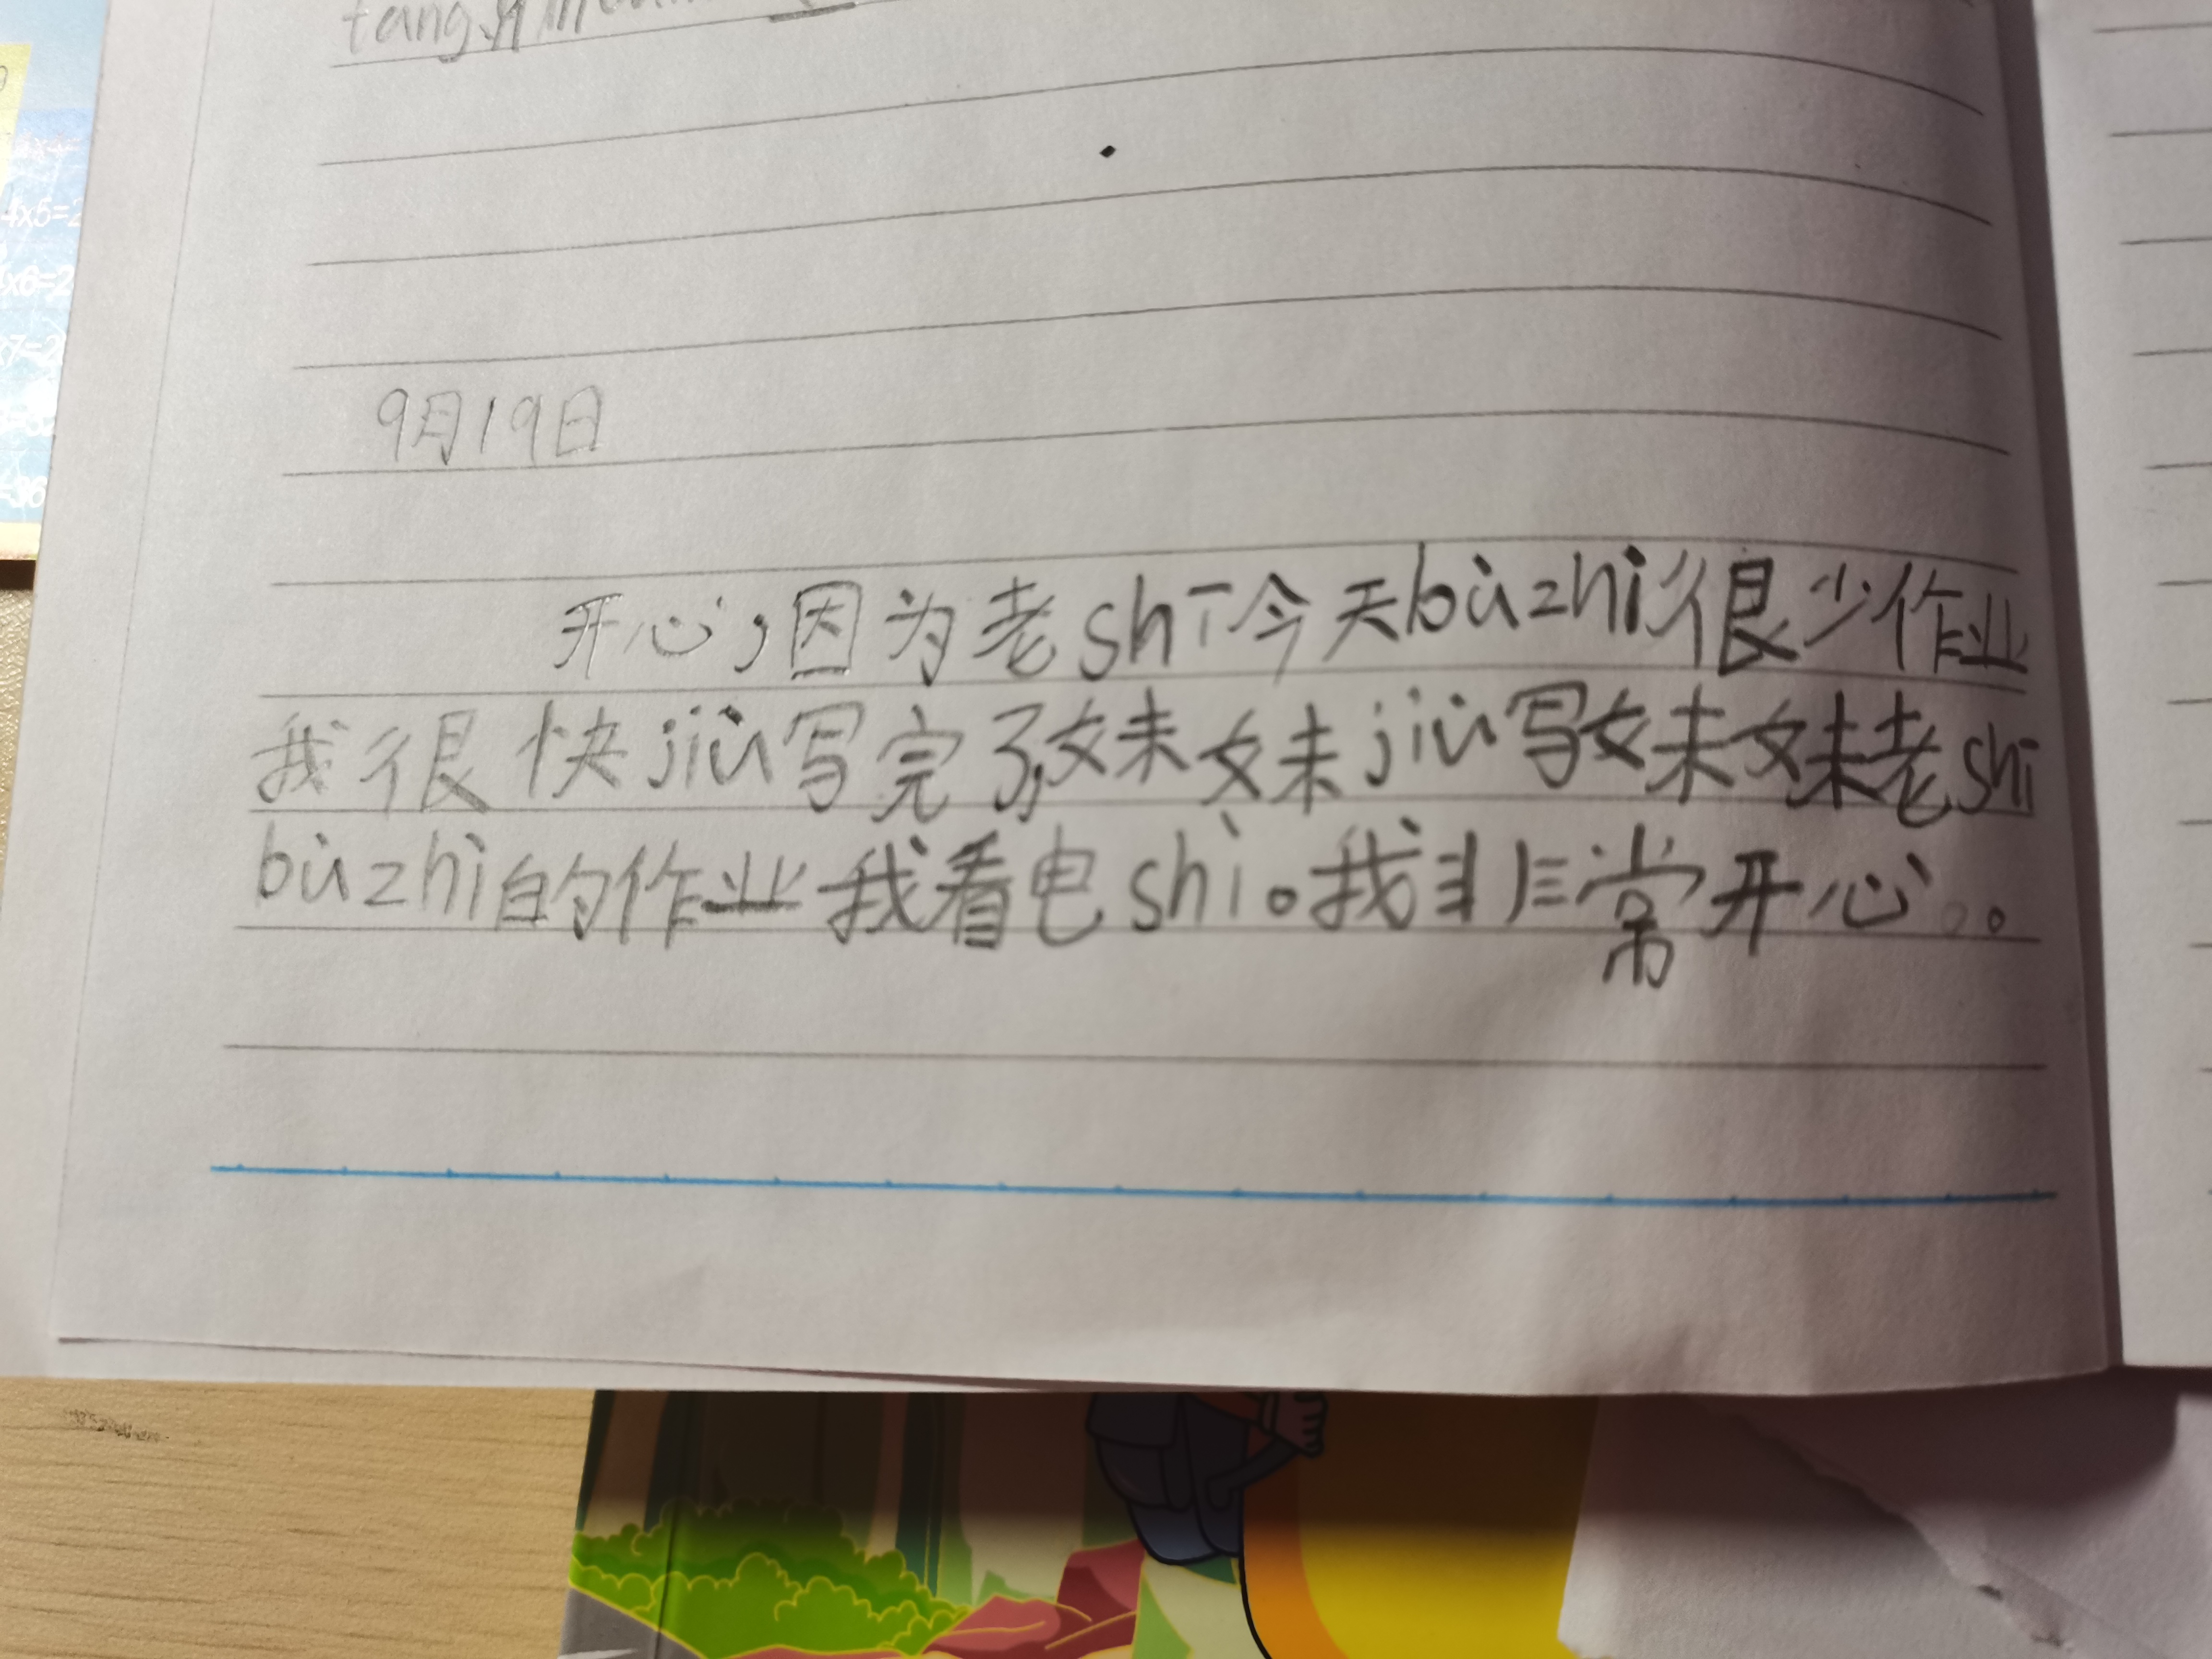 9月19日
开心,因为老shī今天bùzhì很少作业
我很快jiù写完了,妹妹jiù写妹妹老shī
bùzhì的作业我看电shì。我非常开心。
4x5=2
x6=2
x7=2
=36